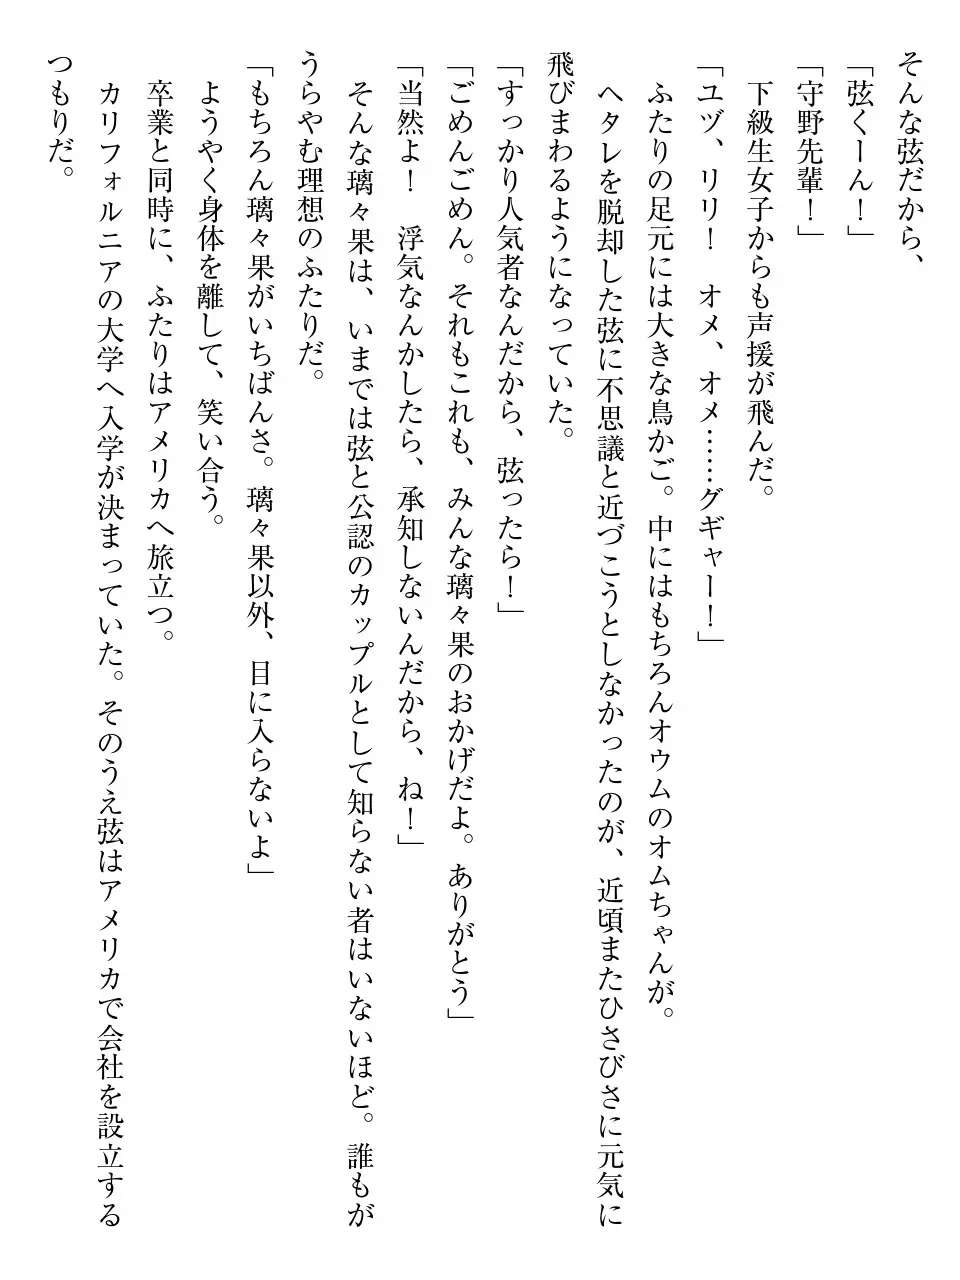 そんな弦だから、
「弦くーん！」
「守野先輩！」
　下級生女子からも声援が飛んだ。
「ユヅ、リリ！　オメ、オメ……グギャー！」
　ふたりの足元には大きな鳥かご。中にはもちろんオウムのオムちゃんが。
　ヘタレを脱却した弦に不思議と近づこうとしなかったのが、近頃またひさびさに元気に
飛びまわるようになっていた。
「すっかり人気者なんだから、弦ったら！」
「ごめんごめん。それもこれも、みんな璃々果のおかげだよ。ありがとう」
「当然よ！　浮気なんかしたら、承知しないんだから、ね！」
　そんな璃々果は、いまでは弦と公認のカップルとして知らない者はいないほど。誰もが
うらやむ理想のふたりだ。
「もちろん璃々果がいちばんさ。璃々果以外、目に入らないよ」
　ようやく身体を離して、笑い合う。
　卒業と同時に、ふたりはアメリカへ旅立つ。
　カリフォルニアの大学へ入学が決まっていた。そのうえ弦はアメリカで会社を設立する
つもりだ。